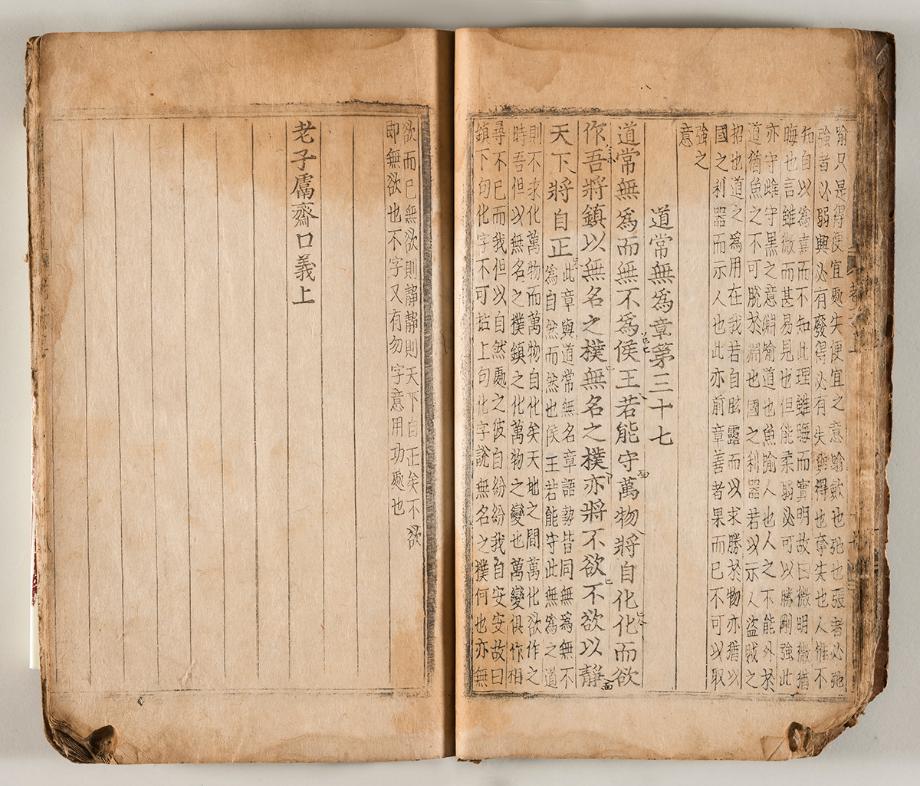 喻只是得便宜處失便宜之意喻歙也弛也張者必弛
強者以弱興必有廢得必有失與得也奪失也人惟不
知自以為喜而不知此理雖晦而實明故曰微明微猶
晦也言雖微而甚易見也但能柔弱必可以勝剛強此
亦守雌守黑之意淵喻道也魚喻人也人之不能外於
道猶魚之不可脫於淵也國之利器若以示人盜賊之
招也道之為用在我若自眩露而以求勝於物亦猶以
國之利器而示人也此亦前章善者果而已不可以取
強之
意
道常無為章第三十七
道常無為而無不為侯王若能守萬物將自化化而欲
作吾將鎮以無名之樸無名之樸亦將不欲不欲以靜
天下將自正
此章與道常無名章語勢皆同無為無不
為自然而然也侯王若能守此無為之道
則不求化萬物而萬物自化矣天地之間萬化欲作之
時吾但以無名之樸鎮之化萬物之變也萬變俱作相
尋不已而我但以自然處之彼自紛紛我自安安故曰
鎮下句化字不可拈上句化字說無名之樸何也亦無
欲而已無欲則靜靜則天下自正矣不欲
即無欲也不字又有勿字意用功處也
老子鬳齋口義上